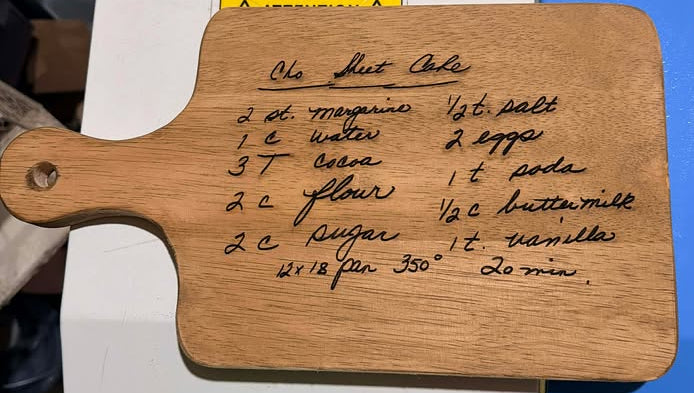 ATTENTION
Cho Sheet Cake
2 st. margarine
1 c water
3 T cocoa
2 c flour
2 c sugar
1/2 t. salt
2 eggs
1 t soda
1/2 c buttermilk
1 t. vanilla
12x18 pan 350° 20 min.